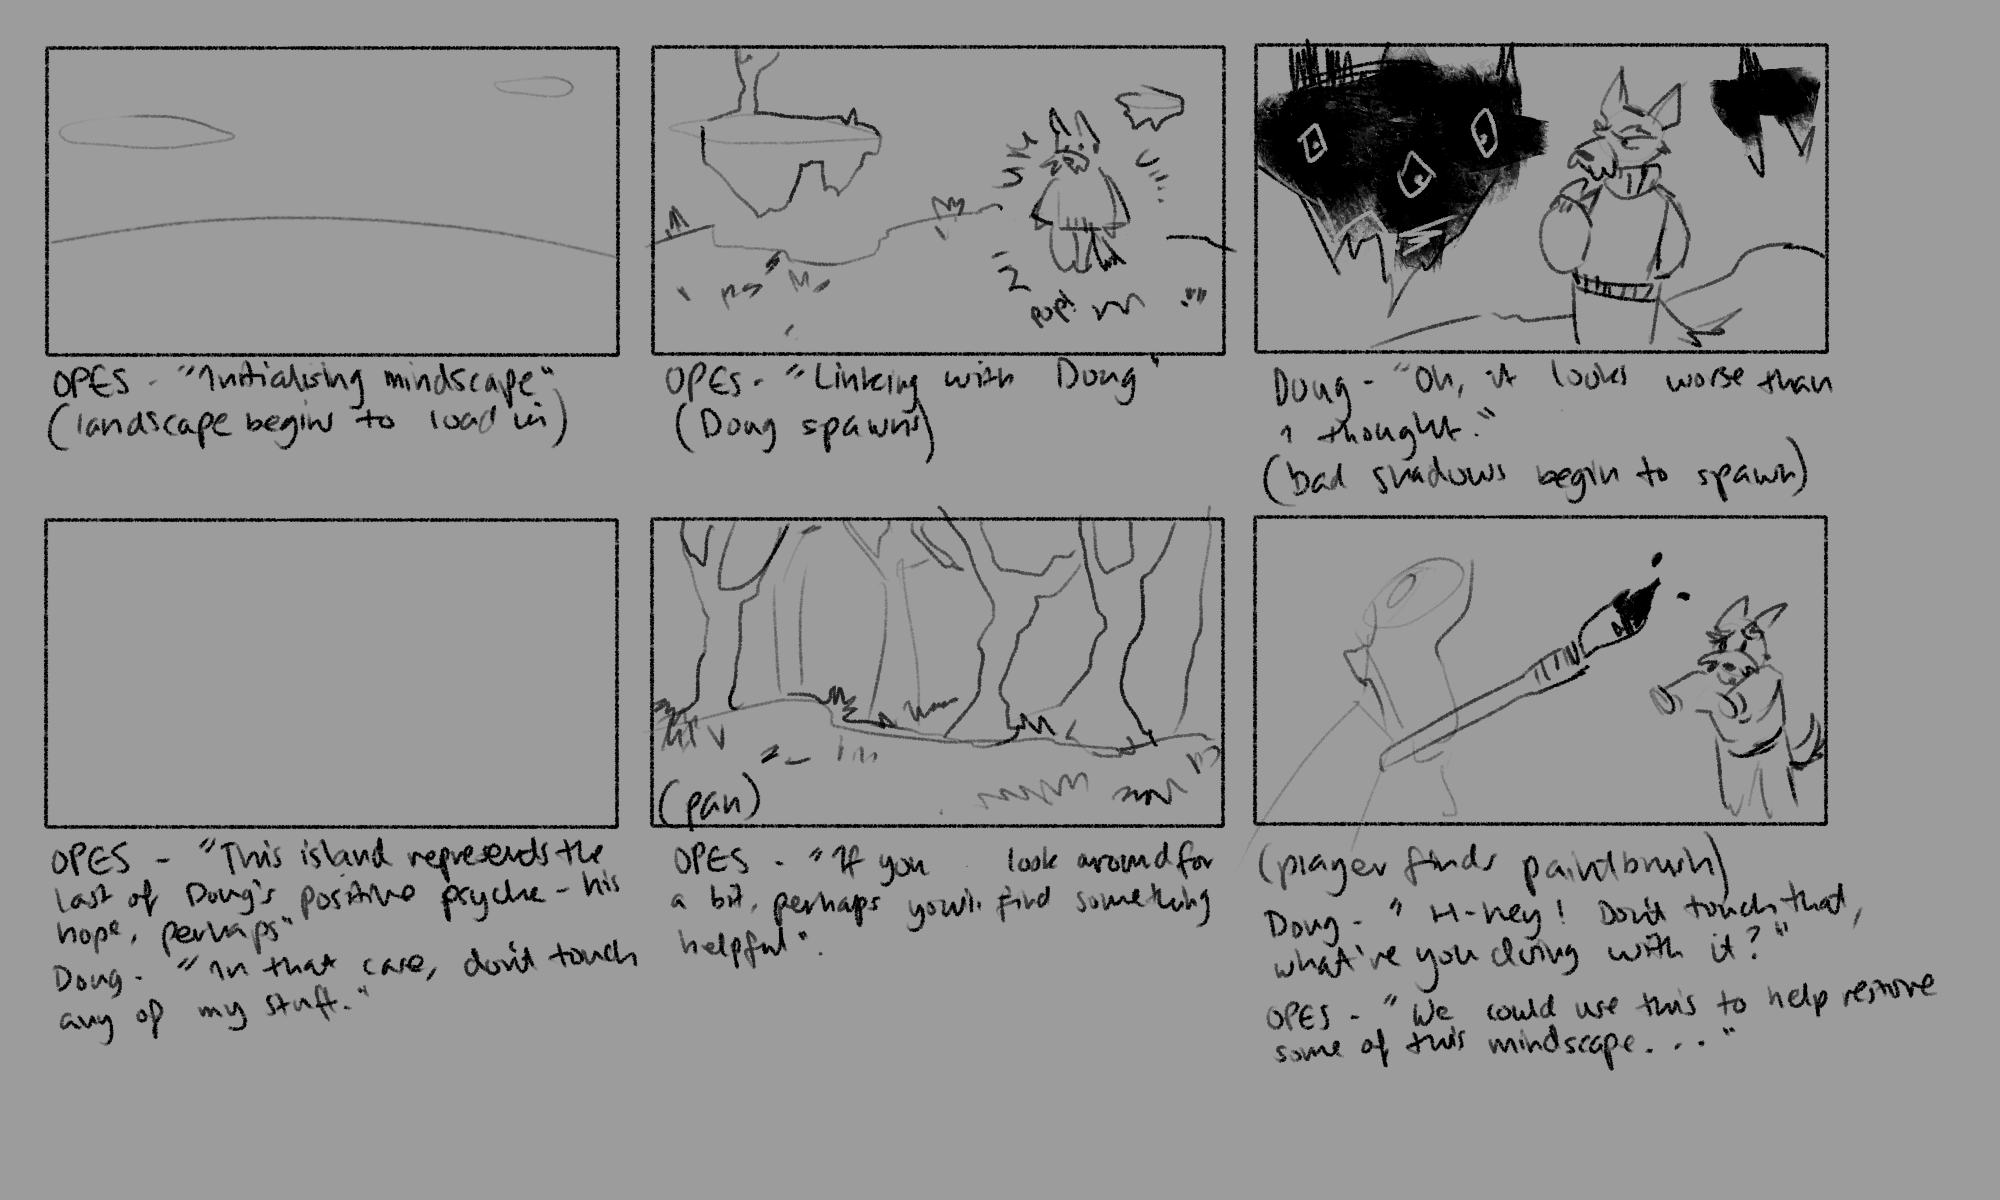 OPES - "Initialising mindscape"
(landscape begins to load in)
pop!
OPES - "Linking with Doug"
(Doug spawns)
Doug - "Oh, it looks worse than
I thought."
(bad shadows begin to spawn)
OPES - "This island represents the
last of Doug's positive psyche - his
hope, perhaps"
Doug - "In that case, don't touch
any of my stuff."
(pan)
OPES - "If you look around for
a bit, perhaps you'll find something
helpful".
(player finds paintbrush)
Doug - "H-hey! Don't touch that,
what're you doing with it?"
OPES - "We could use this to help restore
some of this mindscape..."